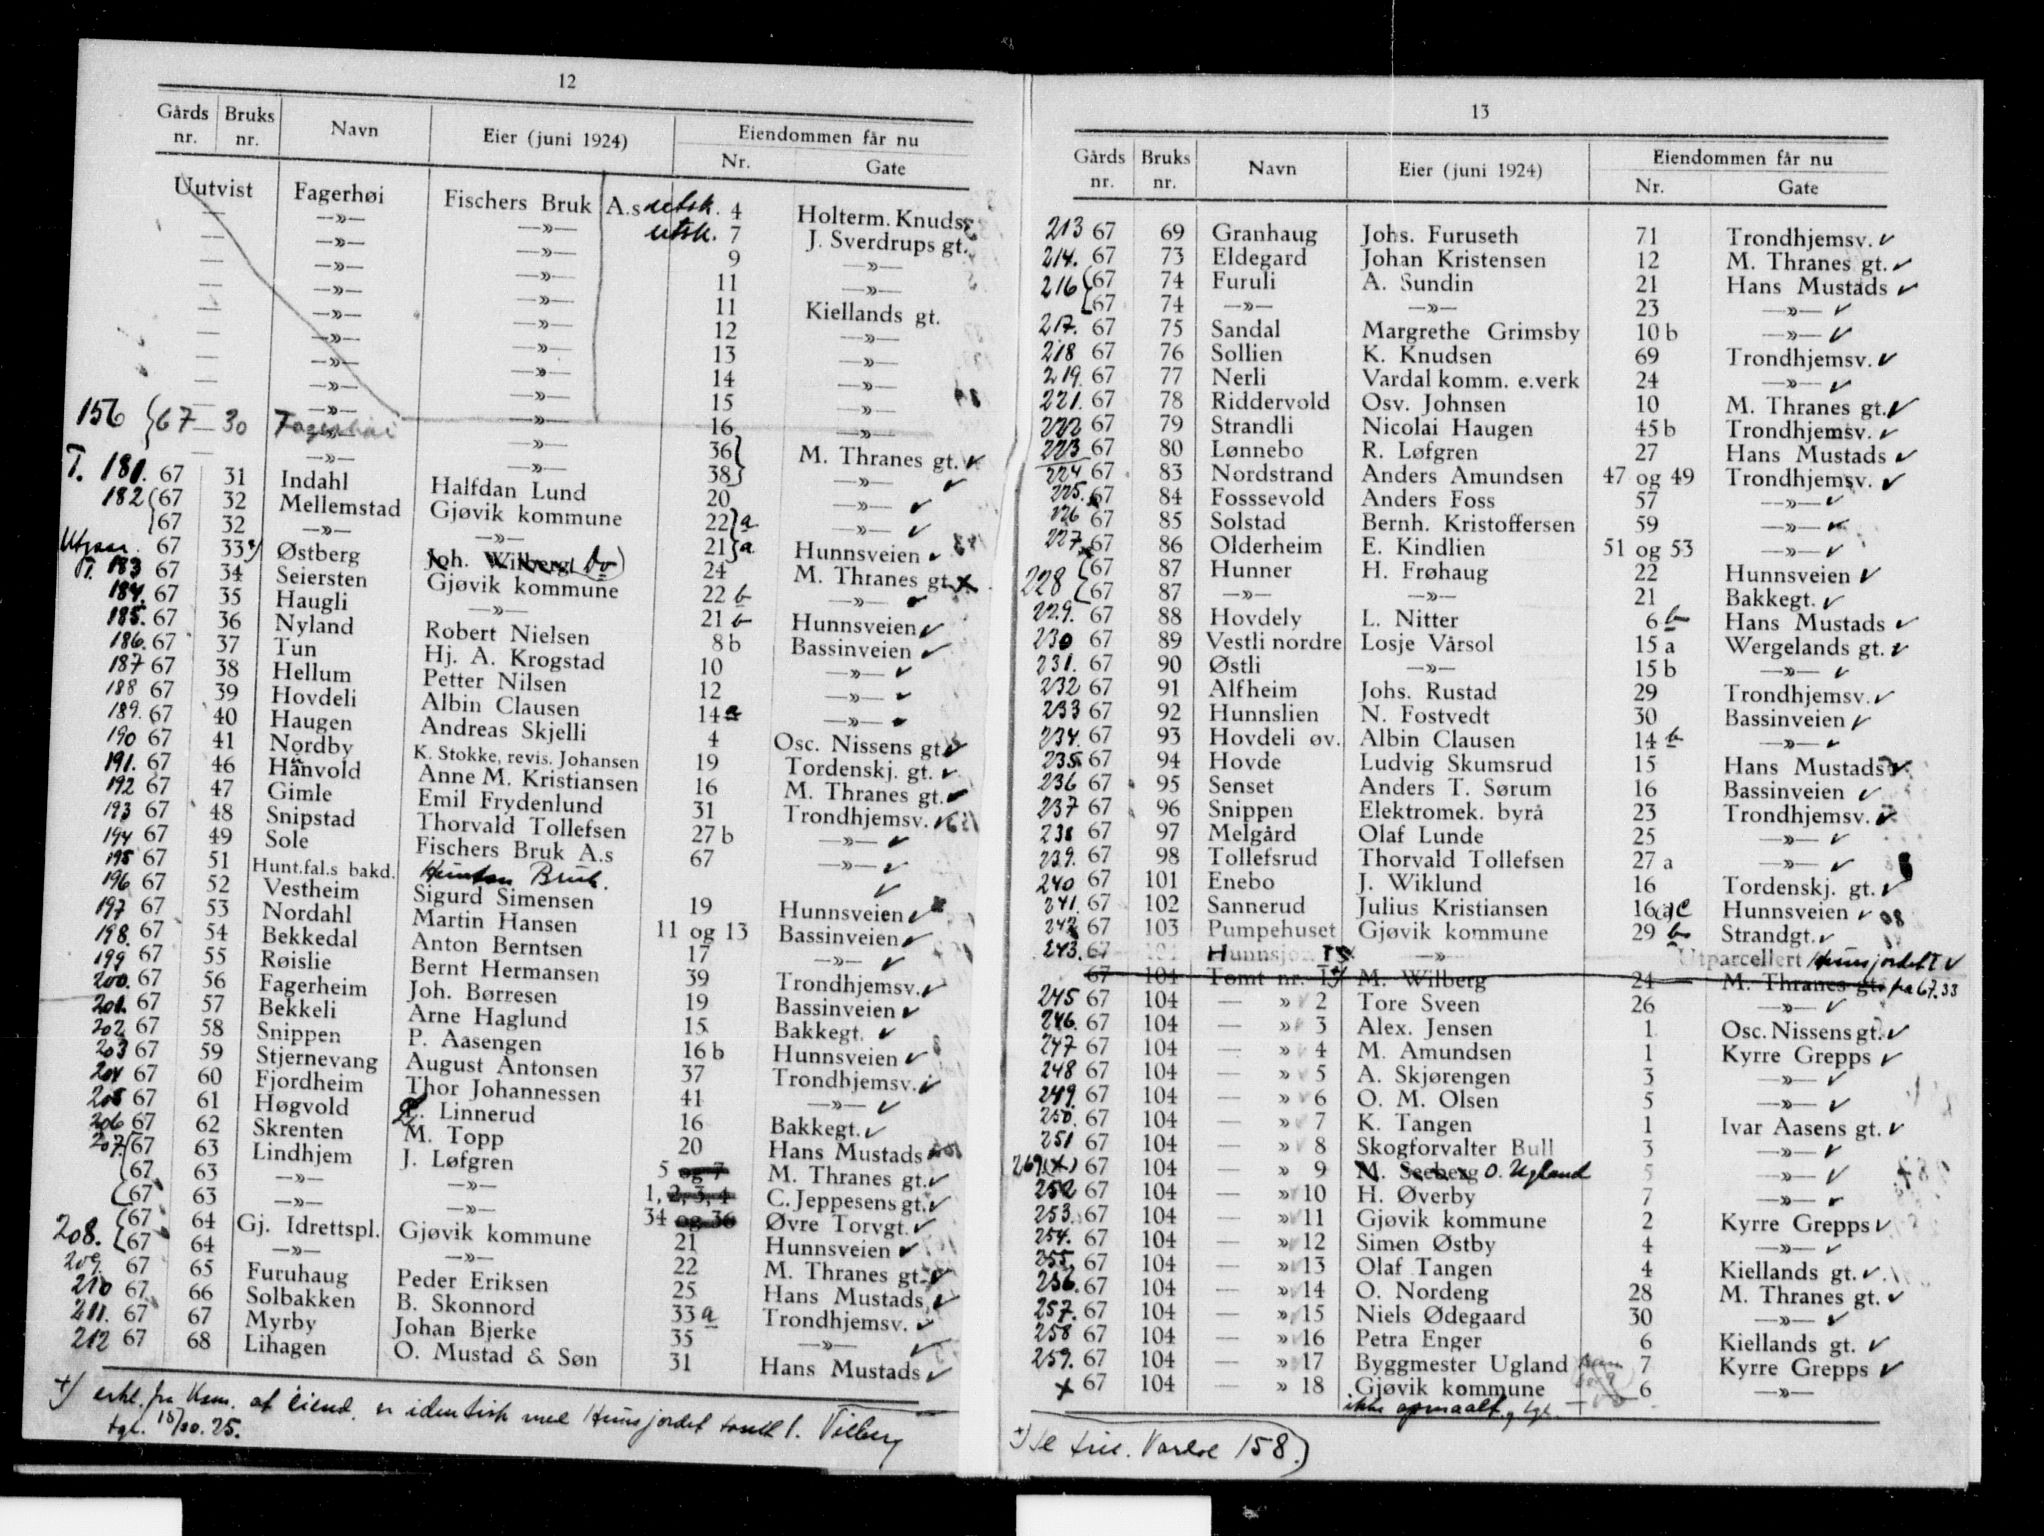 12
Gårds nr. Bruks nr. Navn Eier (juni 1924) Eiendommen får nu
Nr. Gate
Uutvist Fagerhøi Fischers Bruk A.s utsk. 4 Holterm. Knuds.
— —»— —»— utsk. 7 J. Sverdrups gt.
— —»— —»— 9 —»—
— —»— —»— 11 —»—
— —»— —»— 11 Kiellands gt.
— —»— —»— 12 —»—
— —»— —»— 13 —»—
— —»— —»— 14 —»—
— —»— —»— 15 —»—
— —»— —»— 16 —»—
156 67 — 30 Fagerhøi —»— —»— 36 M. Thranes gt. ✓
— —»— —»— 38 —»— ✓
T. 181. 67 31 Indahl Halfdan Lund 20 —»— ✓
182 67 32 Mellemstad Gjøvik kommune 22 a —»— ✓
67 32 —»— —»— 21 a Hunnsveien ✓
Utgaar. 67 33 x) Østberg Joh. Wilberg Do 24 M. Thranes gt. x
T. 183 67 34 Seiersten Gjøvik kommune 22 b —»— ✓
184. 67 35 Haugli —»— 21 b Hunnsveien ✓
185. 67 36 Nyland Robert Nielsen 8 b Bassinveien ✓
186. 67 37 Tun Hj. A. Krogstad 10 —»— ✓
187 67 38 Hellum Petter Nilsen 12 —»— ✓
188 67 39 Hovdeli Albin Clausen 14 a —»— ✓
189. 67 40 Haugen Andreas Skjelli 4 Osc. Nissens gt. ✓
190 67 41 Nordby K. Stokke, revis. Johansen 19 Tordenskj. gt. ✓
191. 67 46 Hånvold Anne M. Kristiansen 16 M. Thranes gt. ✓
192 67 47 Gimle Emil Frydenlund 31 Trondhjemsv. ✓
193 67 48 Snipstad Thorvald Tollefsen 27 b —»— ✓
194 67 49 Sole Fischers Bruk A.s 67 —»— ✓
195 67 51 Hunt.fal.s bakd. Hunton Bruk. ✓
196 67 52 Vestheim Sigurd Simensen 19 Hunnsveien ✓
197 67 53 Nordahl Martin Hansen 11 og 13 Bassinveien ✓
198. 67 54 Bekkedal Anton Berntsen 17 —»— ✓
199 67 55 Røislie Bernt Hermansen 39 Trondhjemsv. ✓
200. 67 56 Fagerheim Joh. Børresen 19 Bassinveien ✓
201. 67 57 Bekkeli Arne Haglund 15 Bakkegt. ✓
202 67 58 Snippen P. Aasengen 16 b Hunnsveien ✓
203 67 59 Stjernevang August Antonsen 37 Trondhjemsv. ✓
204 67 60 Fjordheim Thor Johannessen 41 —»— ✓
205 67 61 Høgvold Linnerud 16 Bakkegt. ✓
206 67 62 Skrenten M. Topp 20 Hans Mustads
207. 67 63 Lindhjem J. Løfgren 5 og 7 M. Thranes gt. ✓
67 63 —»— —»— 1, 2, 3, 4 C. Jeppesens gt. ✓
67 63 —»— —»— 34 og 36 Øvre Torvgt. ✓
208. 67 64 Gj. Idrettspl. Gjøvik kommune 21 Hunnsveien ✓
67 64 —»— —»— 22 M. Thranes gt. ✓
209. 67 65 Furuhaug Peder Eriksen 25 Hans Mustads ✓
210 67 66 Solbakken B. Skonnord 33 a Trondhjemsv. ✓
211. 67 67 Myrby Johan Bjerke 35 —»— ✓
212 67 68 Lihagen O. Mustad & Søn 31 Hans Mustads ✓
x) erkl. fra Kom. at eiend. er identisk med Hunsjordet tomt 1. Vilberg
tgl. 15/10.25.
13
Gårds nr. Bruks nr. Navn Eier (juni 1924) Eiendommen får nu
Nr. Gate
213 67 69 Granhaug Johs. Furuseth 71 Trondhjemsv. ✓
214. 67 73 Eldegard Johan Kristensen 12 M. Thranes gt. ✓
216 67 74 Furuli A. Sundin 21 Hans Mustads ✓
67 74 —»— —»— 23 —»— ✓
217. 67 75 Sandal Margrethe Grimsby 10 b —»— ✓
218 67 76 Sollien K. Knudsen 69 Trondhjemsv. ✓
219. 67 77 Nerli Vardal komm. e.verk 24 —»— ✓
221. 67 78 Riddervold Osv. Johnsen 10 M. Thranes gt. ✓
222 67 79 Strandli Nicolai Haugen 45 b Trondhjemsv. ✓
223 67 80 Lønnebo R. Løfgren 27 Hans Mustads ✓
224 67 83 Nordstrand Anders Amundsen 47 og 49 Trondhjemsv. ✓
225. 67 84 Fosssevold Anders Foss 57 —»— ✓
226 67 85 Solstad Bernh. Kristoffersen 59 —»— ✓
227 67 86 Olderheim E. Kindlien 51 og 53 —»— ✓
228 67 87 Hunner H. Frøhaug 22 Hunnsveien ✓
67 87 —»— —»— 21 Bakkegt. ✓
229. 67 88 Hovdely L. Nitter 6 b Hans Mustads ✓
230 67 89 Vestli nordre Losje Vårsol 15 a Wergelands gt. ✓
231. 67 90 Østli —»— 15 b —»— ✓
232 67 91 Alfheim Johs. Rustad 29 Trondhjemsv. ✓
233 67 92 Hunnslien N. Fostvedt 30 Bassinveien ✓
234. 67 93 Hovdeli øv. Albin Clausen 14 b —»— ✓
235. 67 94 Hovde Ludvig Skumsrud 15 Hans Mustads ✓
236 67 95 Senset Anders T. Sørum 16 Bassinveien ✓
237 67 96 Snippen Elektromek. byrå 23 Trondhjemsv. ✓
238 67 97 Melgård Olaf Lunde 25 —»— ✓
239. 67 98 Tollefsrud Thorvald Tollefsen 27 a —»— ✓
240 67 101 Enebo J. Wiklund 16 Tordenskj. gt. ✓
241. 67 102 Sannerud Julius Kristiansen 16 Hunnsveien ✓
242 67 103 Pumpehuset Gjøvik kommune 29 b Strandgt. ✓
243. 67 104 Hunnsjor. —»— Utparcellert Hunsjordet ✓
67 104 Tomt nr. 1 M. Wilberg 24 M. Thranes gt. fra 67.33
245 67 104 — » 2 Tore Sveen 26 —»— ✓
246. 67 104 — » 3 Alex. Jensen 1 Osc. Nissens gt. ✓
247 67 104 — » 4 M. Amundsen 1 Kyrre Grepps ✓
248 67 104 — » 5 A. Skjørengen 3 —»— ✓
249. 67 104 — » 6 O. M. Olsen 5 —»— ✓
250. 67 104 — » 7 K. Tangen 1 Ivar Aasens gt. ✓
251 67 104 — » 8 Skogforvalter Bull 3 —»— ✓
269 (x) 67 104 — » 9 M. Seeberg O. Ugland 5 —»— ✓
252 67 104 — » 10 H. Øverby 7 —»— ✓
253. 67 104 — » 11 Gjøvik kommune 2 Kyrre Grepps ✓
254. 67 104 — » 12 Simen Østby 4 —»— ✓
255. 67 104 — » 13 Olaf Tangen 4 Kiellands gt. ✓
256. 67 104 — » 14 O. Nordeng 28 M. Thranes gt. ✓
257. 67 104 — » 15 Niels Ødegaard 30 —»— ✓
258 67 104 — » 16 Petra Enger 6 Kiellands gt. ✓
259. 67 104 — » 17 Byggmester Ugland 7 Kyrre Grepps ✓
x 67 104 — » 18 Gjøvik kommune 6 —»—
ikke opmaalt, tgl.
158.